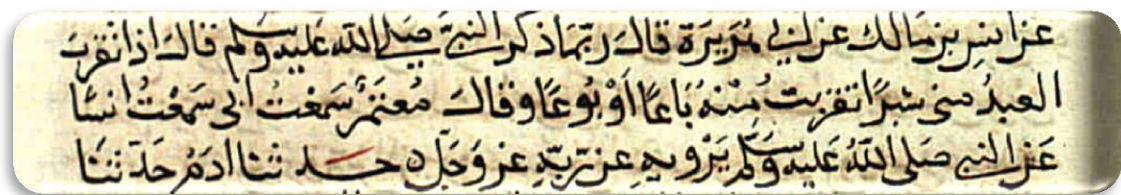 عن انس بن مالك عن ابي هريرة قال ربما ذكر النبي صلى الله عليه وسلم قال اذا تقرب
العبد مني شبرا تقربت منه باعا او بوعا وقال معتمر سمعت ابي سمعت انسا
عن النبي صلى الله عليه وسلم يرويه عن ربه عز وجل ه حدثنا ادم حدثنا